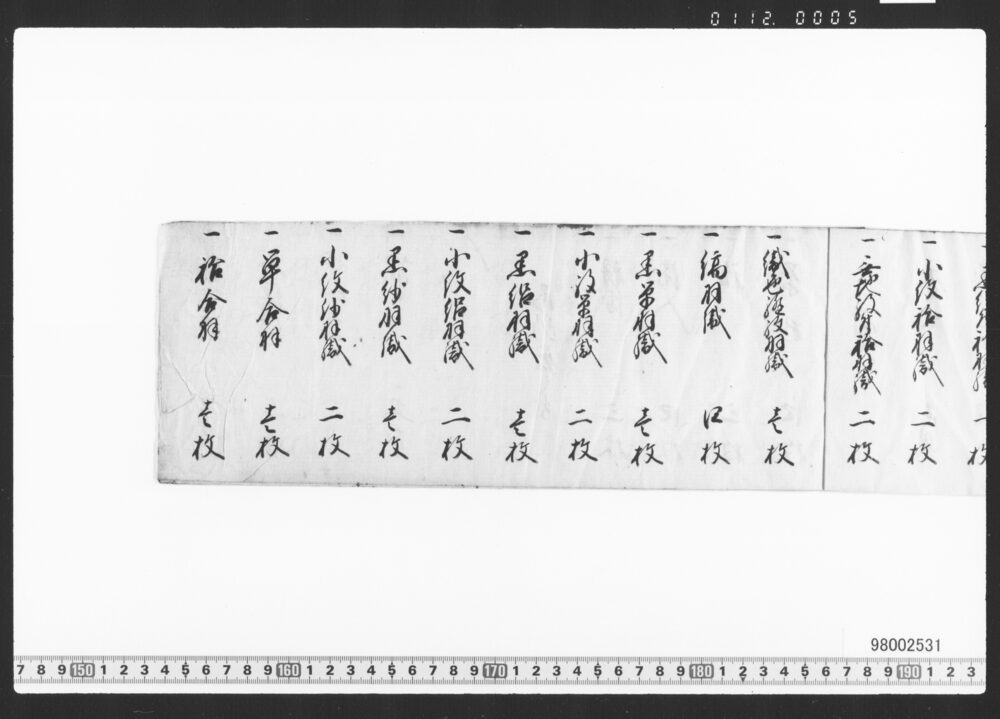 0112.0005
一 小紋袷羽織 二枚
二枚
一 壱枚
一 縞羽織 四枚
一 黒単羽織 壱枚
一 小紋単羽織 二枚
一 黒絽羽織 壱枚
一 小紋絽羽織 二枚
一 黒紗羽織 壱枚
一 小紋紗羽織 二枚
一 単合羽 壱枚
一 袷合羽 壱枚
98002531
7 8 9 150 1 2 3 4 5 6 7 8 9 160 1 2 3 4 5 6 7 8 9 170 1 2 3 4 5 6 7 8 9 180 1 2 3 4 5 6 7 8 9 190 1 2 3